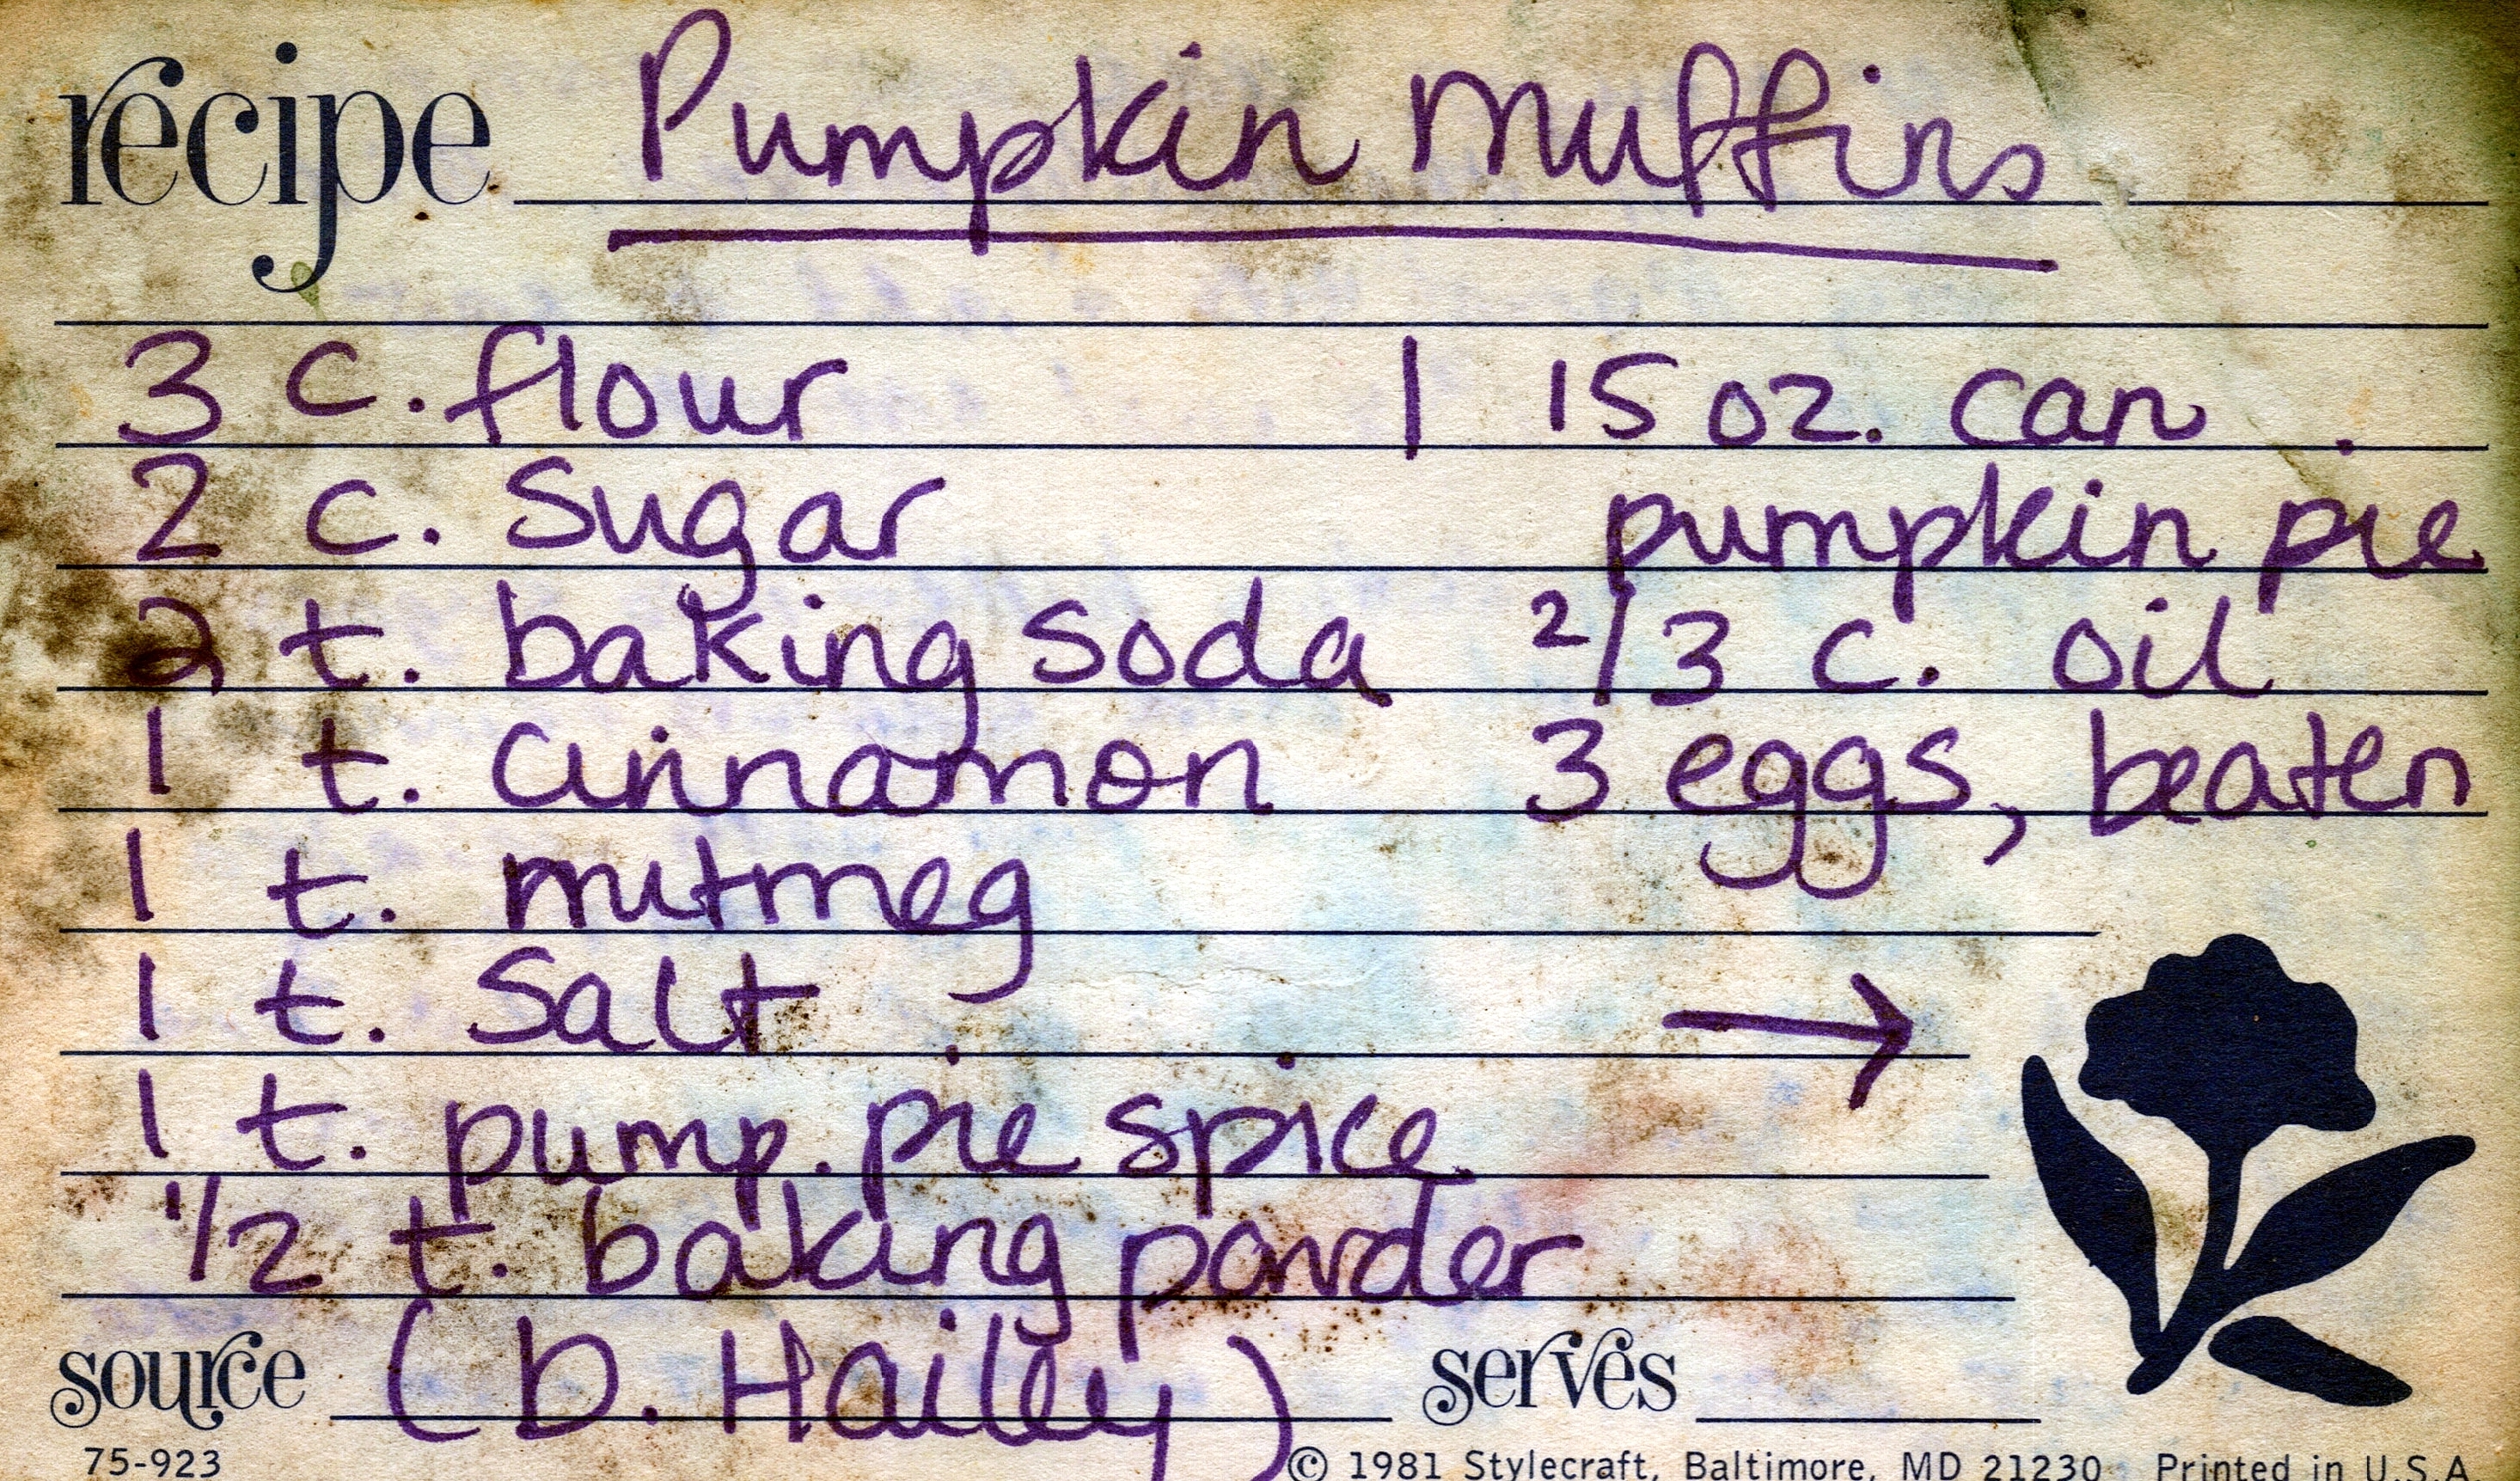 recipe Pumpkin Muffins
3 c. flour
2 c. Sugar
2 t. baking soda
1 t. cinnamon
1 t. nutmeg
1 t. Salt
1 t. pump. pie spice
1/2 t. baking powder
1 15 oz. can
pumpkin pie
2/3 c. oil
3 eggs, beaten
→
source (D. Hailey) serves
75-923 © 1981 Stylecraft, Baltimore, MD 21230 Printed in U.S.A.